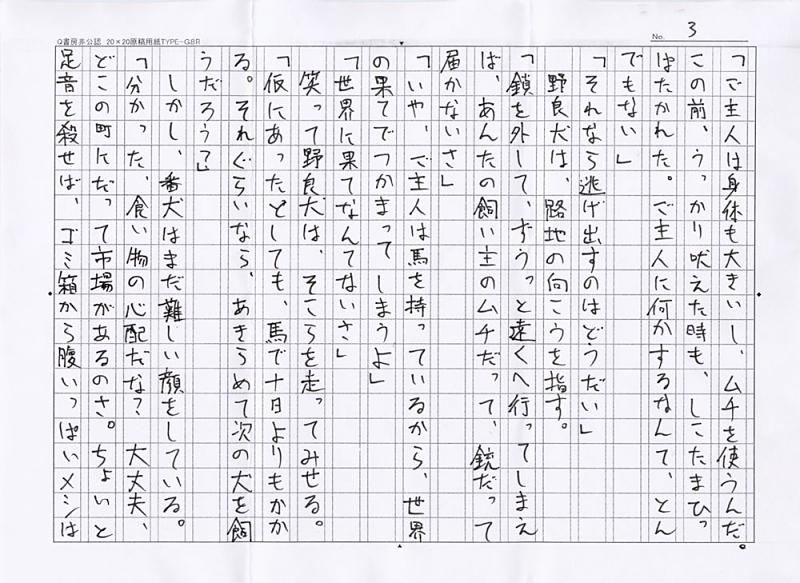 Q書房非公認 20×20原稿用紙TYPE-GBR
No. 3
「ご主人は身体も大きいし、ムチを使うんだ
この前、うっかり吠えた時も、しこたまひっ
ぱたかれた。ご主人に何かするなんて、とん
でもない」
「それなら逃げ出すのはどうだい」
野良犬は、路地の向こうを指す。
「鎖を外して、ずうっと遠くへ行ってしまえ
ば、あんたの飼い主のムチだって、銃だって
届かないさ」
「いや、ご主人は馬を持っているから、世界
の果てでつかまってしまうよ」
「世界に果てなんてないさ」
笑って野良犬は、そこらを走ってみせる。
「仮にあったとしても、馬で十日よりもかか
る。それぐらいなら、あきらめて次の犬を飼
うだろうて」
しかし、番犬はまだ難しい顔をしている。
「分かった、食い物の心配だな？ 大丈夫、
どこの町にだって市場があるのさ。ちょいと
足音を殺せば、ゴミ箱から腹いっぱいメシは